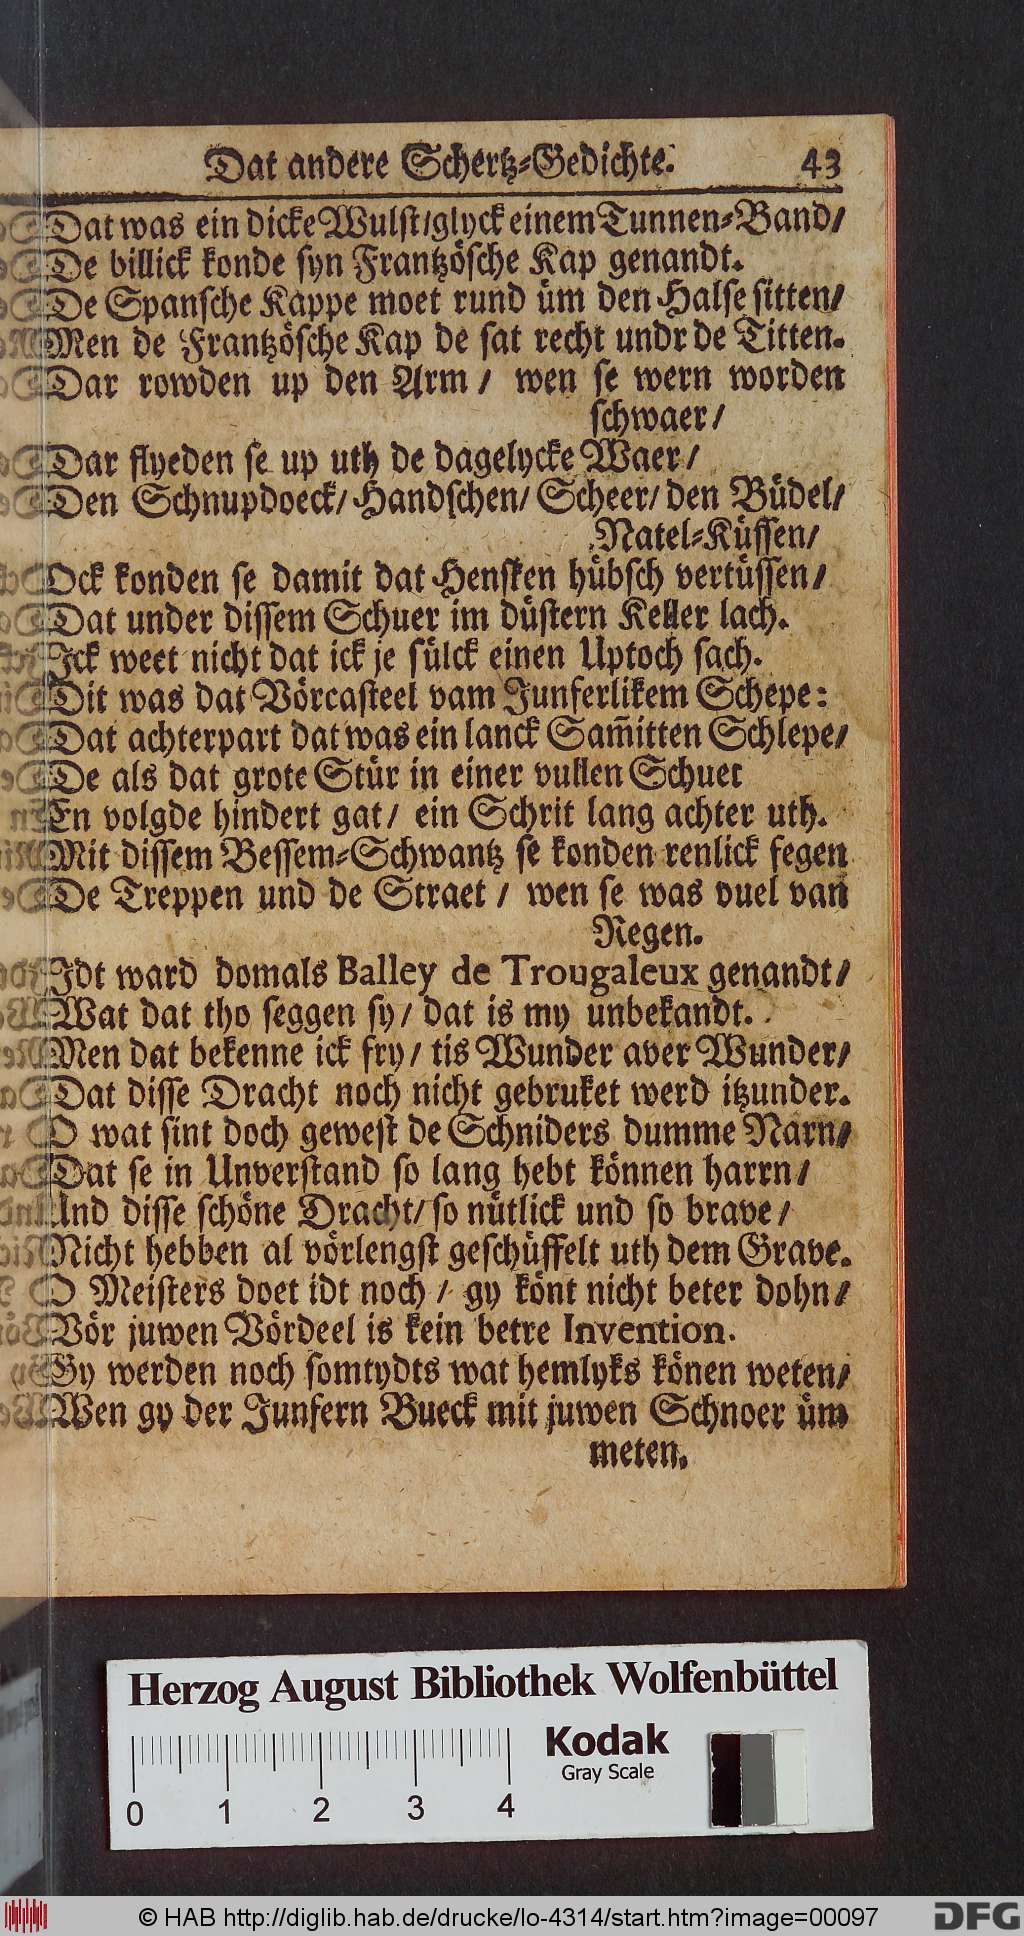 Dat andere Schertz-Gedichte. 43
Dat was ein dicke Wulst/glyck einem Tunnen-Band/
De billick konde syn Frantzösche Kap genandt.
De Spansche Kappe moet rund üm den Halse sitten/
Men de Frantzösche Kap de sat recht undr de Titten.
Dar rowden up den Arm / wen se wern worden
schwaer/
Dar flyeden se up uth de dagelycke Waer/
Den Schnupdoeck/ Handschen/ Scheer/ den Büdel/
Natel-Küssen/
Ock konden se damit dat Hensken hübsch vertüssen/
Dat under dissem Schuer im düstern Keller lach.
Ick weet nicht dat ick je sülck einen Uptoch sach.
Dit was dat Vörcasteel vam Junferlikem Schepe:
Dat achterpart dat was ein lanck Sam̃itten Schlepe/
De als dat grote Stür in einer vullen Schuet
En volgde hindert gat/ ein Schrit lang achter uth.
Mit dissem Bessem-Schwantz se konden renlick fegen
De Treppen und de Straet / wen se was vuel van
Regen.
Idt ward domals Balley de Trougaleux genandt/
Wat dat tho seggen sy/ dat is my unbekandt.
Men dat bekenne ick fry/ tis Wunder aver Wunder/
Dat disse Dracht noch nicht gebruket werd itzunder.
O wat sint doch gewest de Schniders dumme Narn/
Dat se in Unverstand so lang hebt können harrn/
Und disse schöne Dracht/ so nütlick und so brave/
Nicht hebben al vörlengst geschüffelt uth dem Grave.
O Meisters doet idt noch / gy könt nicht beter dohn/
Vör juwen Vördeel is kein betre Invention.
Gy werden noch somtydts wat hemlyks könen weten/
Wen gy der Junfern Bueck mit juwen Schnoer üm
meten.
Herzog August Bibliothek Wolfenbüttel
Kodak
Gray Scale
0 1 2 3 4
© HAB http://diglib.hab.de/drucke/lo-4314/start.htm?image=00097
DFG